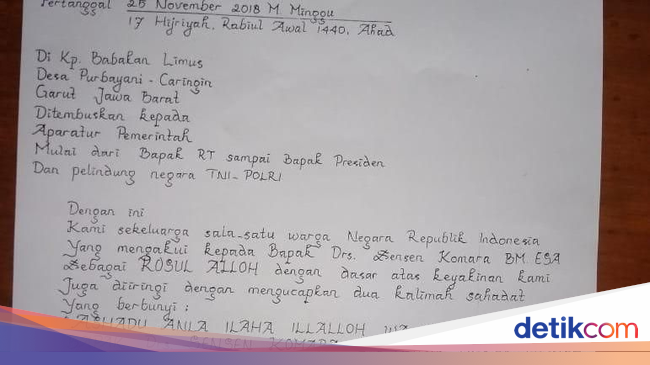 Tertanggal 25 November 2018 M. Minggu
17 Hijriyah, Rabiul Awal 1440, Ahad
Di Kp. Babakan Limus
Desa Purbayani - Caringin
Garut Jawa Barat
Ditembuskan kepada
Aparatur Pemerintah
Mulai dari Bapak RT sampai Bapak Presiden
Dan pelindung negara TNI-POLRI
Dengan ini
Kami sekeluarga sala-satu warga Negara Republik Indonesia
Yang mengakui kepada Bapak Drs. Sensen Komara BM. ESA
Sebagai ROSUL ALLOH dengan dasar atas keyakinan kami
Juga diiringi dengan mengucapkan dua kalimah sahadat
Yang berbunyi :
ASHADU ANLA ILAHA ILLALLOH WA
SENSEN KOMARA
detikcom